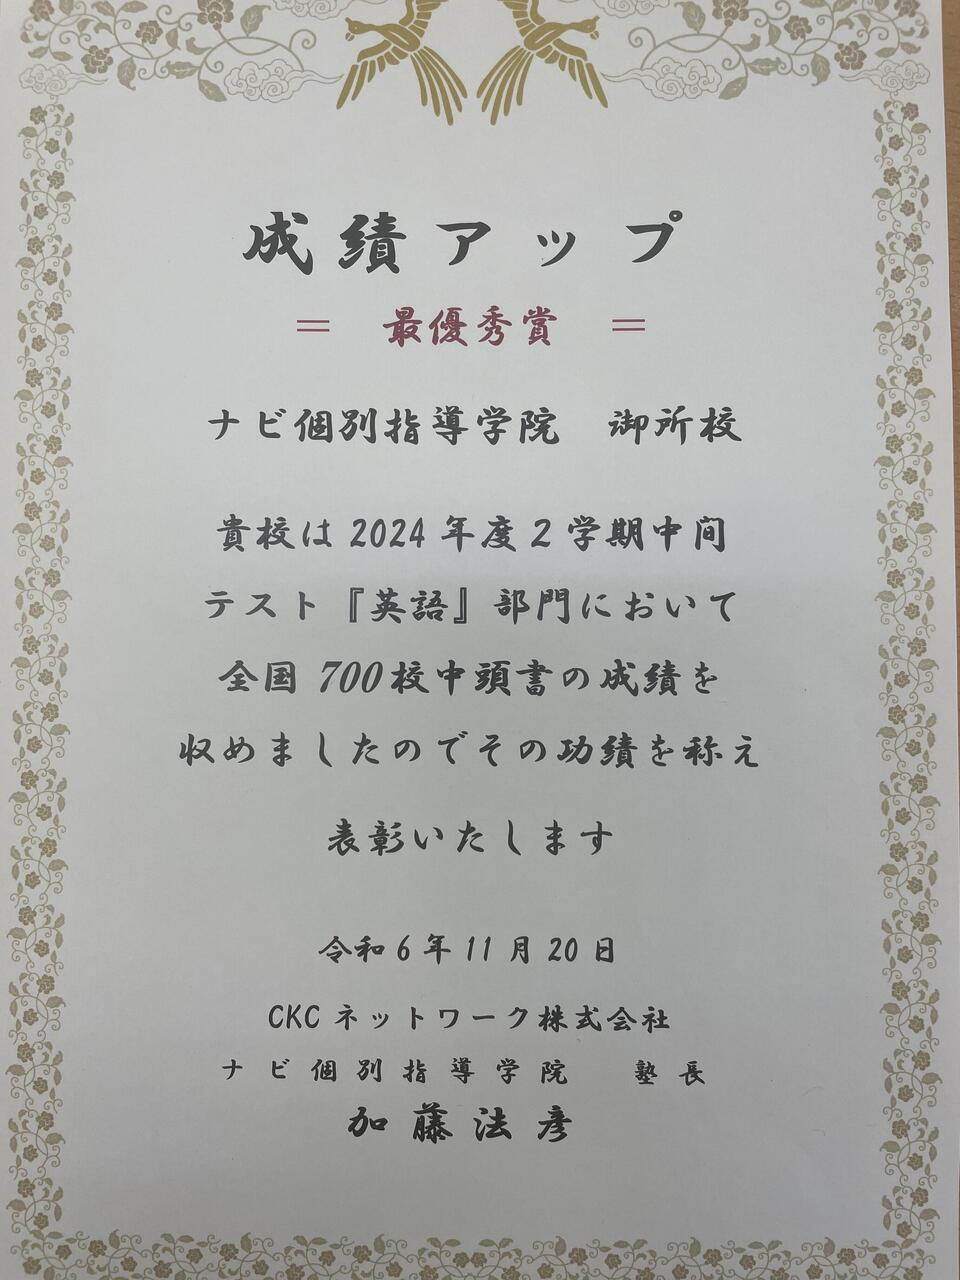 成績アップ
＝　最優秀賞　＝
ナビ個別指導学院　御所校
貴校は2024年度2学期中間
テスト『英語』部門において
全国700校中頭書の成績を
収めましたのでその功績を称え
表彰いたします
令和6年11月20日
CKCネットワーク株式会社
ナビ個別指導学院　塾長
加藤法彦